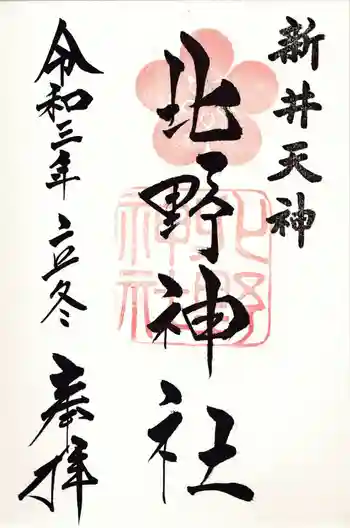 新井天神
北野神社
北野
神社
令和三年 立冬 奉拝